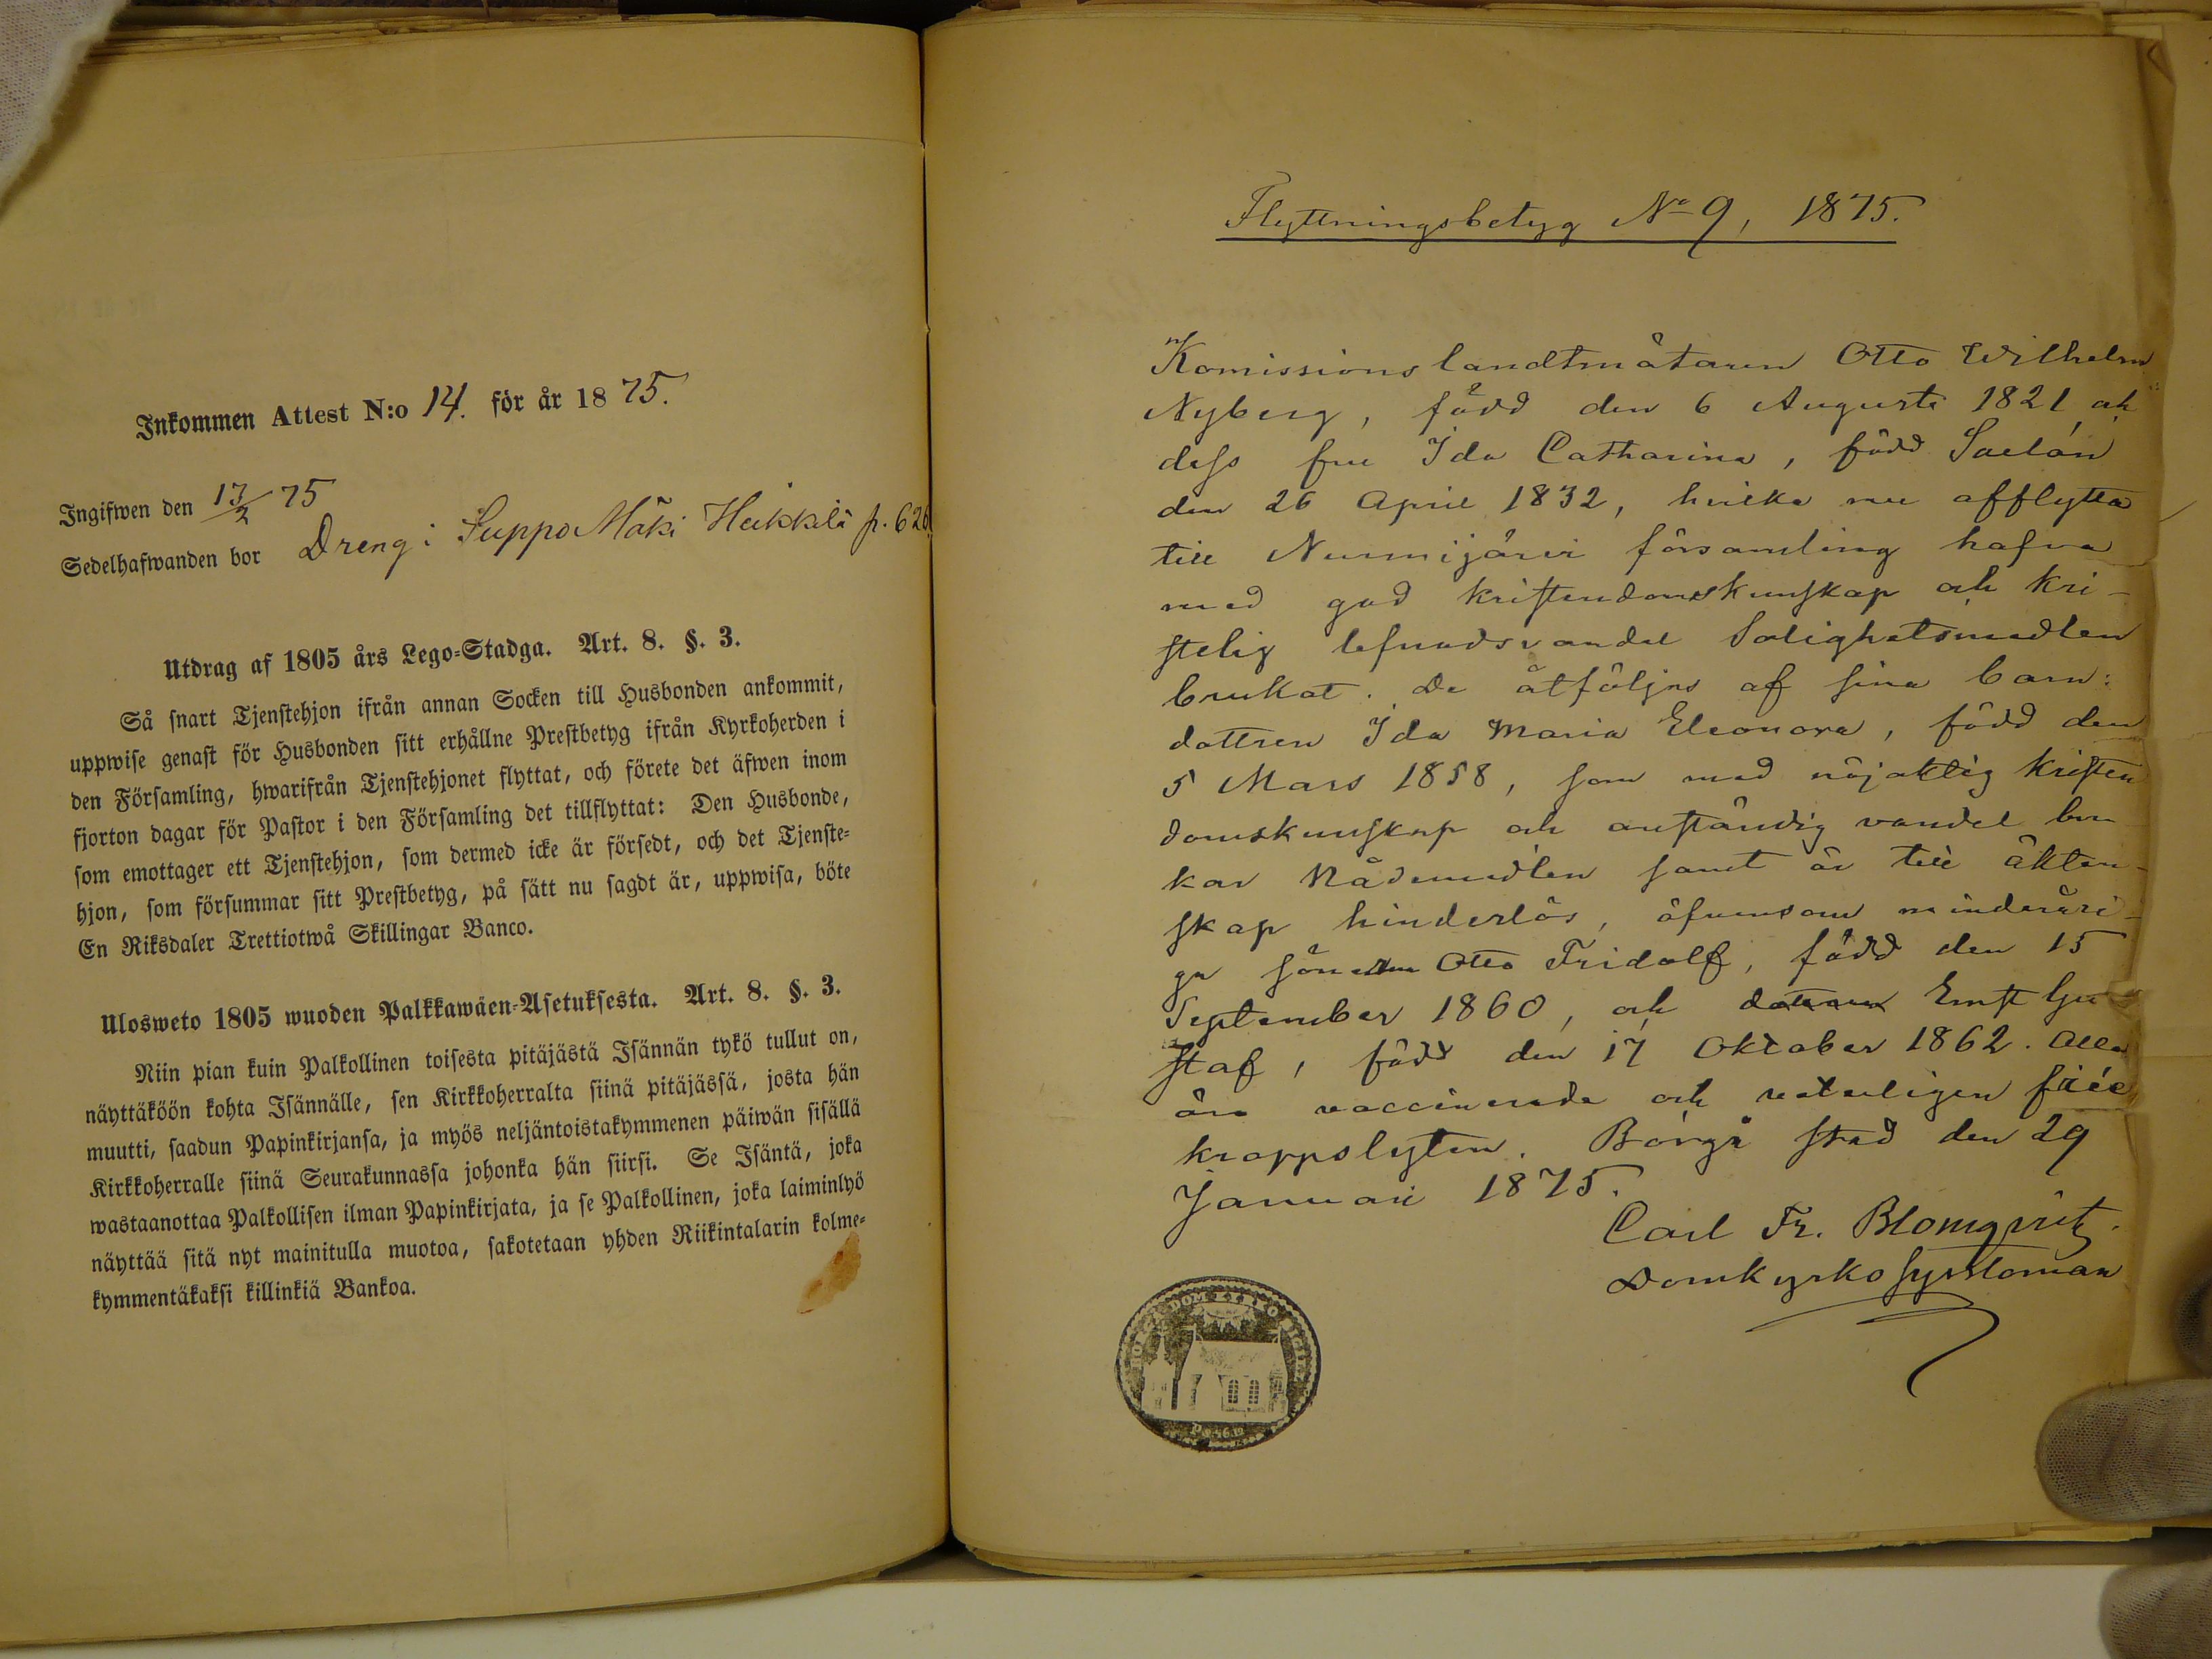 Inkommen Attest N:o 14. för år 1875.
Ingifwen den 13/2 75
Sedelhafwanden bor Dreng i Suppo Mäki Heikkilä p. 626
Utdrag af 1805 års Lego-Stadga. Art. 8. §. 3.
Så snart Tjenstehjon ifrån annan Socken till Husbonden ankommit,
uppwise genast för Husbonden sitt erhållne Prestbetyg ifrån Kyrkoherden i
den Församling, hwarifrån Tjenstehjonet flyttat, och förete det äfwen inom
fjorton dagar för Pastor i den Församling det tillflyttat: Den Husbonde,
som emottager ett Tjenstehjon, som dermed icke är försedt, och det Tjenste-
hjon, som försummar sitt Prestbetyg, på sätt nu sagdt är, uppwisa, böte
En Riksdaler Trettiotwå Skillingar Banco.
Ulosweto 1805 wuoden Palkkawäen-Asetuksesta. Art. 8. §. 3.
Niin pian kuin Palkollinen toisesta pitäjästä Isännän tykö tullut on,
näyttäköön kohta Isännälle, sen Kirkkoherralta siinä pitäjässä, josta hän
muutti, saadun Papinkirjansa, ja myös neljäntoistakymmenen päiwän sisällä
Kirkkoherralle siinä Seurakunnassa johonka hän siirsi. Se Isäntä, joka
wastaanottaa Palkollisen ilman Papinkirjata, ja se Palkollinen, joka laiminlyö
näyttää sitä nyt mainitulla muotoa, sakotetaan yhden Riikintalarin kolme-
kymmentäkaksi killinkiä Bankoa.
Flyttningsbetyg No 9, 1875.
Komissionslandtmätaren Otto Wilhelm
Nyberg, född den 6 Augusti 1821 och
dess fru Ida Catharina, född Saelán
den 26 April 1832, hvilka nu afflytta
till Nurmijärvi församling hafva
med god kristendomskunskap och kri-
stelig lefnadsvandel Salighetsmedlen
brukat. De åtföljas af sina barn:
dottren Ida Maria Eleonora, född den
5 Mars 1858, som med nöjaktig kristen
domskunskap och anständig vandel bru
kar Nådemedlen samt är till äkten-
skap hinderlös, äfvensom minderåri-
ga sönerna Otto Fridolf, född den 15
September 1860, och Ernst Gu
staf, född den 17 Oktober 1862. Alla
äro vaccinerade och veterligen frie
kroppslyten. Borgå stad den 29
Januari 1875.
Carl Fr. Blomqvist.
Domkyrkosyssloman